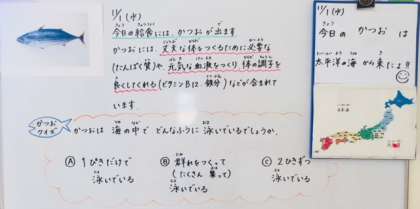 11/1(水)
今日の給食には、かつおが出ます
かつおには、丈夫な体をつくるために必要な
(たんぱく質)や、元気な血液をつくり 体の調子を
良くしてくれる(ビタミンB12、鉄分)などが含まれて
います。
かつおクイズ
かつおは 海の中で どんなふうに 泳いでいるでしょうか。
Ⓐ 1ぴきだけで
泳いでいる
Ⓑ 群れをつくって
(たくさん 集って)
泳いでいる
Ⓒ 2ひきずつ
泳いでいる
11/1(水)
今日の かつお は
太平洋の海 から 来たよ!!